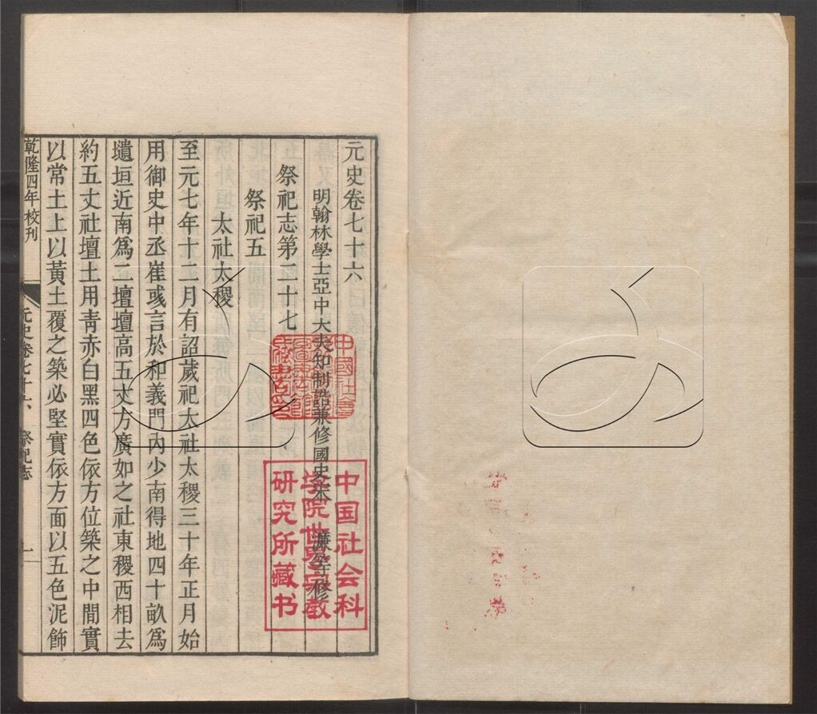 元史卷七十六
明翰林學士亞中大夫知制誥兼修國史宋濂等修
祭祀志第二十七
祭祀五
太社太稷
至元七年十二月有詔歲祀太社太稷三十年正月始
用御史中丞崔彧言於和義門內少南得地四十畝爲
壝垣近南爲二壇壇高五丈方廣如之社東稷西相去
約五丈社壇土用青赤白黑四色依方位築之中間實
以常土上以黃土覆之築必堅實依方面以五色泥飾
乾隆四年校刊
元史卷七十六 祭祀志
一
中国社会科
学院世界宗教
研究所藏书